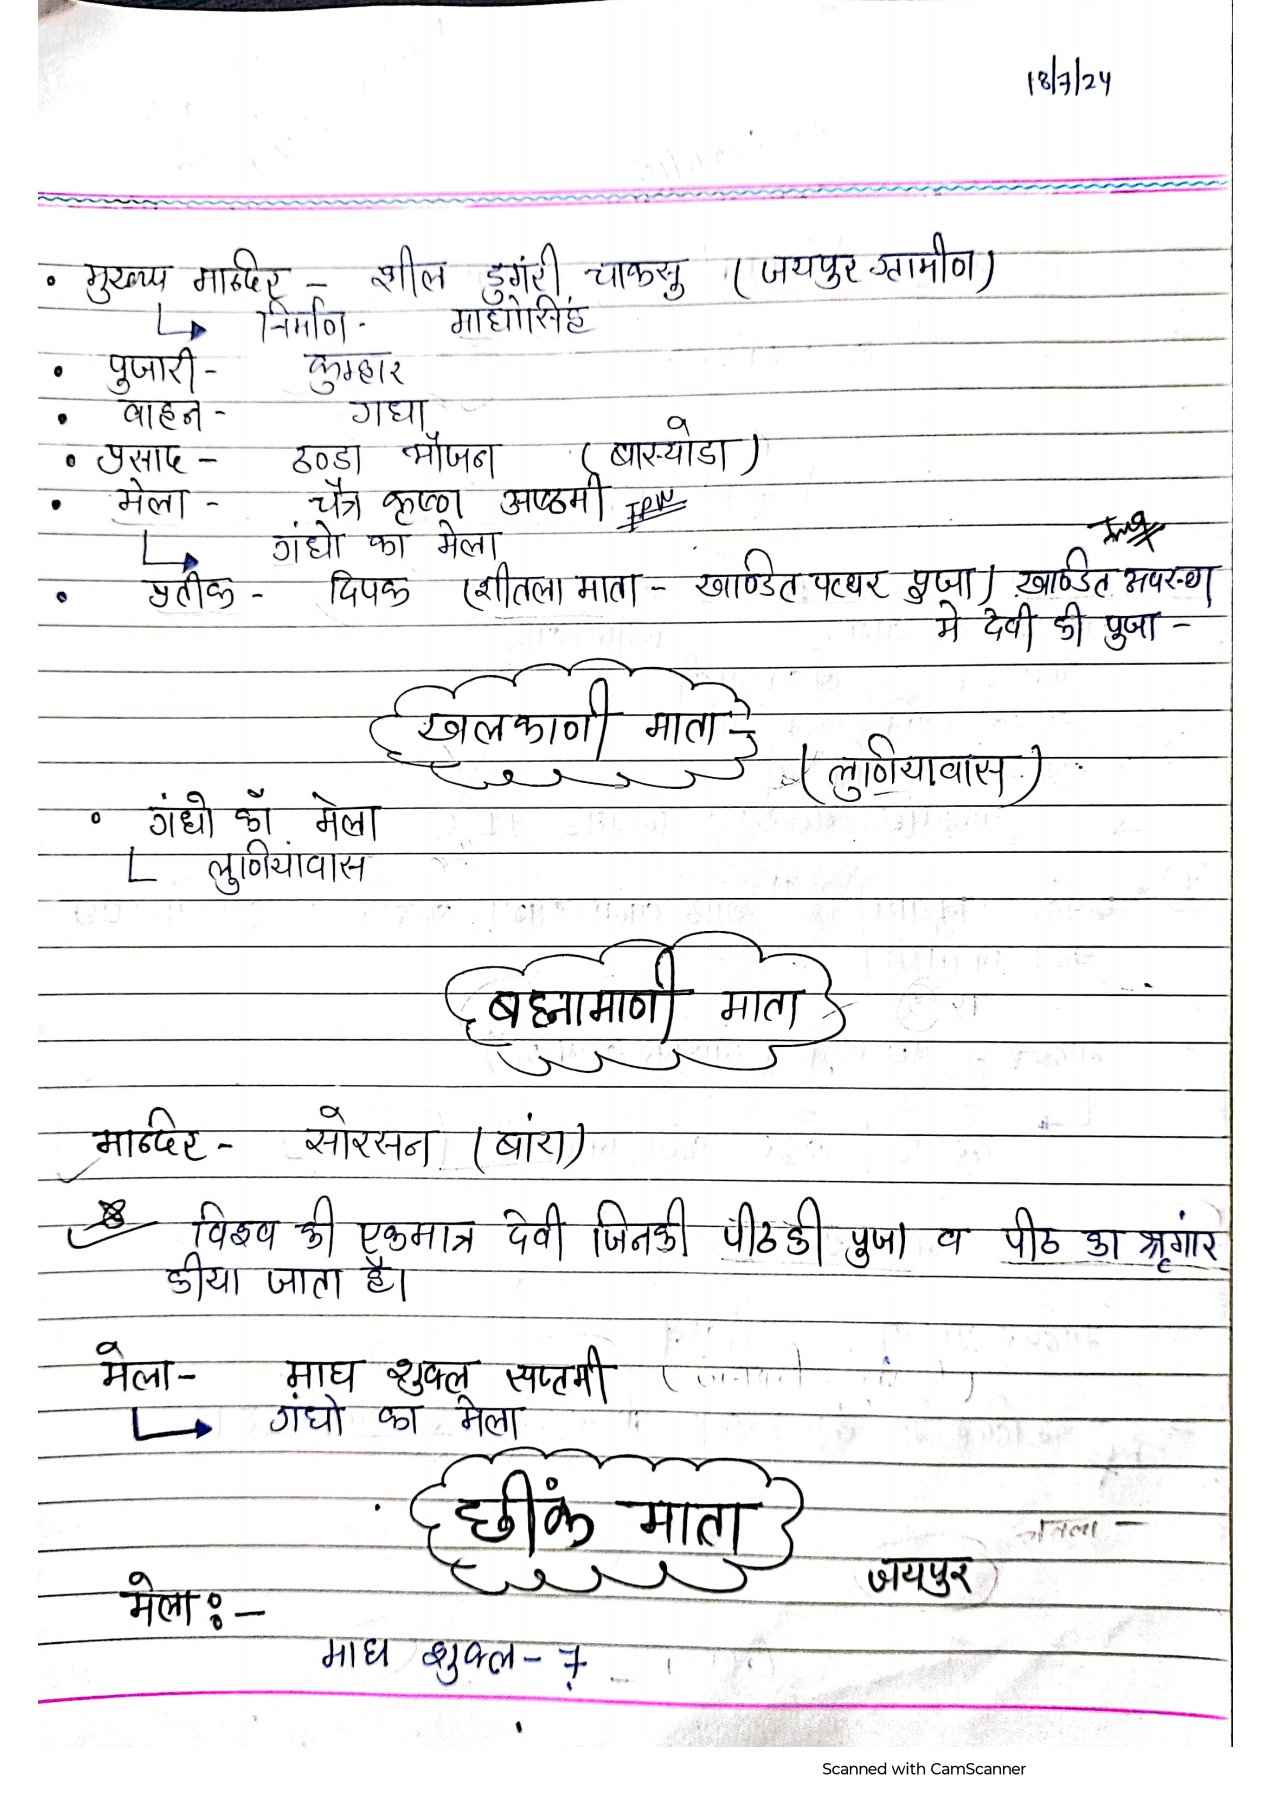 18/7/24
• मुख्य मन्दिर - शील डुगंरी चाकसु (जयपुर ग्रामीण)
निर्माण - माधोसिंह
• पुजारी - कुम्हार
• वाहन - गधा
• प्रसाद - ठण्डा भोजन (बास्योडा)
• मेला - चैत्र कृष्ण अष्ठमी IPM
गंधो का मेला
• प्रतीक - दिपक (शीतला माता - खाण्डित पत्थर पुजा) खाण्डित अवस्था
मे देवी की पुजा -
खलकाणी माता -
(लुणियावास)
• गंधो का मेला
लुणियांवास
बह्नामाणी माता
मान्दिर - सोरसन (बांरा)
विश्व की एकमात्र देवी जिनकी पीठ की पुजा व पीठ का श्रृगांर
कीया जाता है।
मेला - माघ शुक्ल सप्तमी
गंधो का मेला
छींक माता
जयपुर
मेला :-
माघ शुक्ल - 7
Scanned with CamScanner